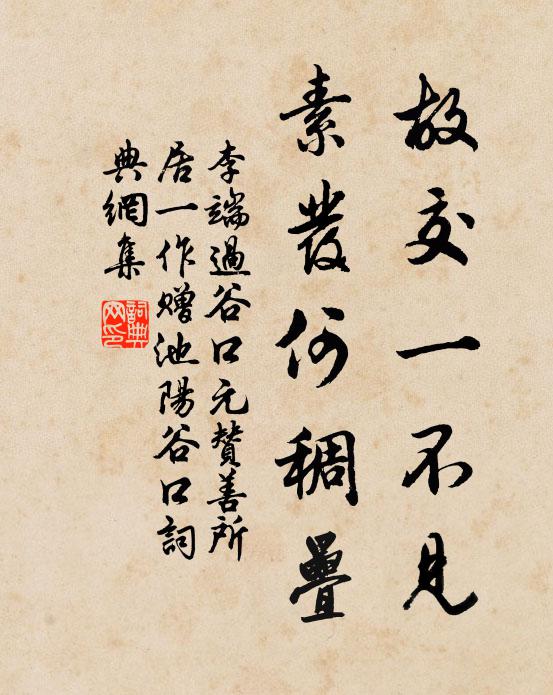 故交一不見
素發何稠疊
李端過谷口元贊善所
居一作贈池陽谷口詞
典網集
詞典
网印